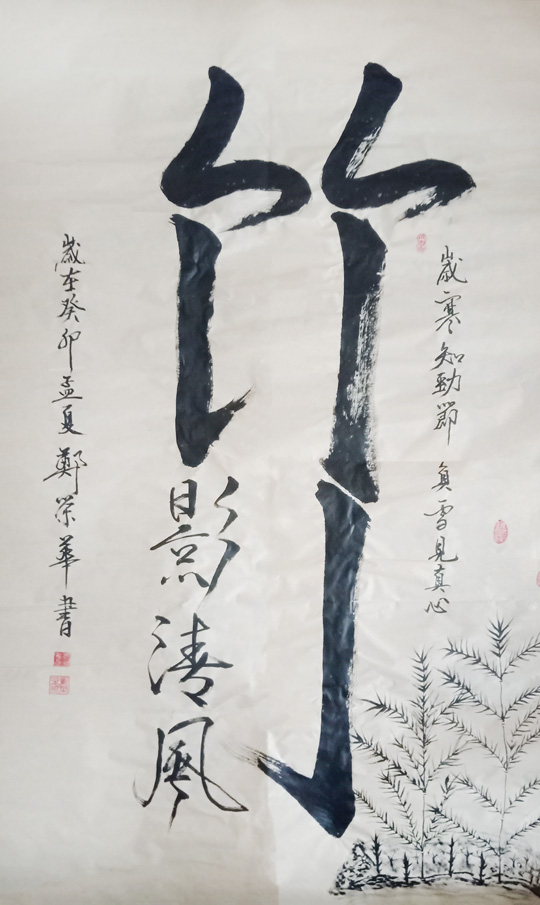 歲寒知勁節 負雪見真心
竹
影清風
歲在癸卯孟夏鄭榮華書